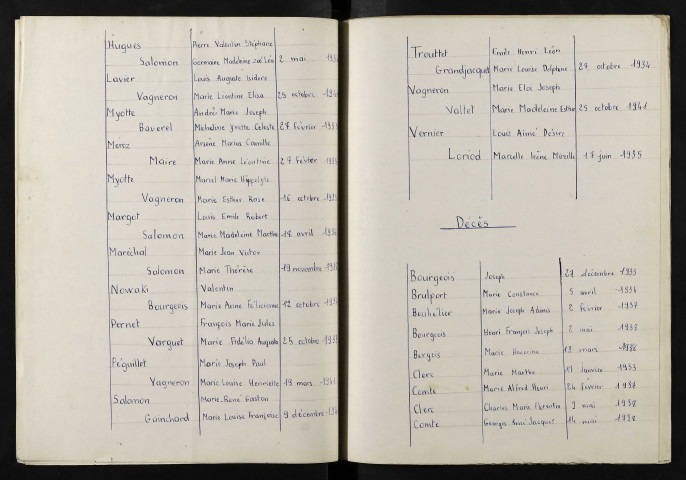 Hugues Pierre Valentin Stéphane
Salomon Germaine Madeleine 2 mai
Lavier Louis Auguste Isidore
Vagneron Marie Léontine Elisa 25 octobre
Myotte André Marie Joseph
Baverel Micheline Yvette Celeste 27 février
Arsène Marius Camille
Maire Marie Anne Léontine 27 février
Myotte Marcel Marie Hippolyte
Vagneron Marie Esther Rose 16 octobre
Margot Louis Emile Robert
Salomon Marie Madeleine Marthe 18 avril
Maréchal Marie Jean Victor
Salomon Marie Thérèse 19 novembre
Nowaki Valentin
Bourgeois Marie Anne Félicienne 12 octobre
Pernet François Marie Jules
Varguet Marie Fidélia Augusta 25 octobre
Péguillet Marie Joseph Paul
Vagneron Marie Louise Henriette 18 mars
Salomon Marie René Gaston
Guinchard Marie Louise Françoise 9 décembre
Trouttet Emile Henri Léon
Grandjacquet Marie Louise Delphine 29 octobre 1934
Vagneron Marie Eloi Joseph
Vallet Marie Madeleine Esther 25 octobre 1941
Vernier Louis Aimé Désiré
Loriod Marcelle Irène Mireille 17 juin 1935
Décès
Bourgeois Joseph 27 décembre 1935
Brulport Marie Constance 5 avril 1936
Bouhélier Marie Joseph 2 février 1937
Bourgeois Henri François Joseph 2 mai 1938
Marie 18 mars 1938
Clerc Marie Marthe 11 janvier 1933
Comte Marie Alfred Henri 24 février 1938
Clerc Charles Marie Florentin 9 mai 1938
Comte Georges René Jacques 14 mai 1938